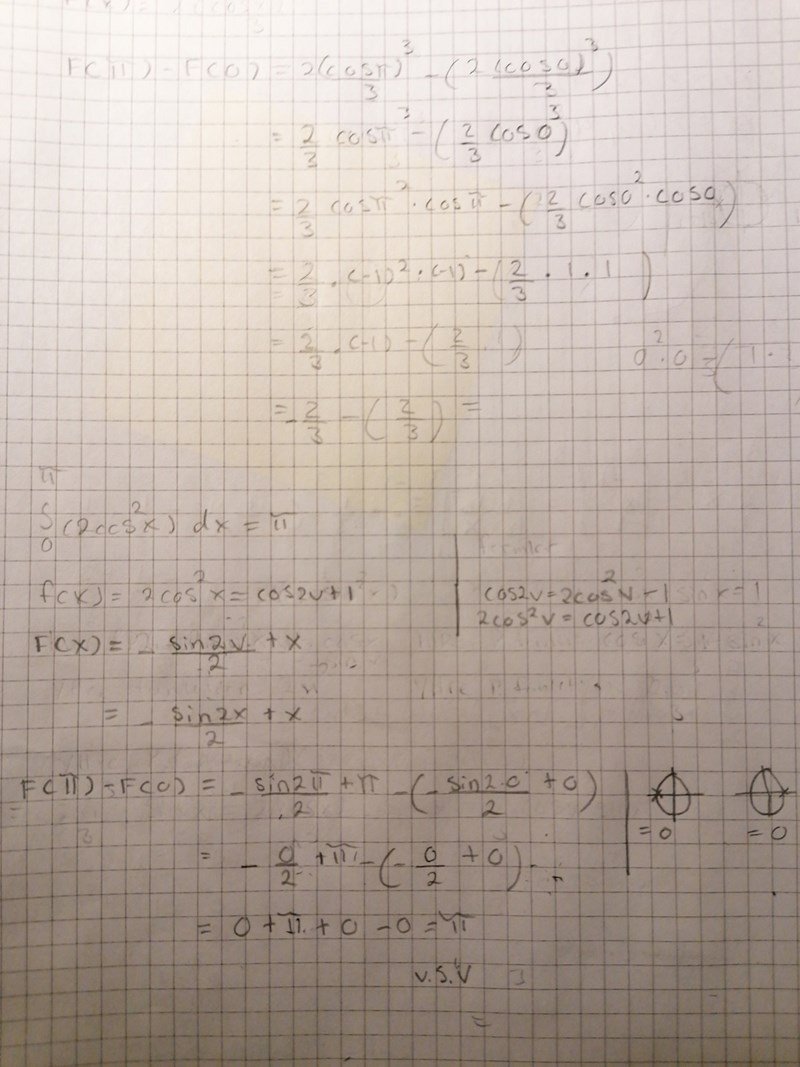 F(π) - F(0) = 2(cosπ)³/3 - (2(cos0)³/3)
= 2/3 cosπ³ - (2/3 cos0³)
= 2/3 cosπ² · cosπ - (2/3 cos0² · cos0)
= 2/3 · (-1)² · (-1) - (2/3 · 1 · 1)
= 2/3 · (-1) - (2/3) 0² · 0 = (1 · 1
= -2/3 - (2/3) =
π
∫ (2cos²x) dx = π
0
f(x) = 2cos²x = cos2v+1
cos2v = 2cos²v - 1
2cos²v = cos2v+1
F(x) = - sin2v/2 + x
= - sin2x/2 + x
F(π) - F(0) = - sin2π/2 + π - (- sin2·0/2 + 0)
= 0 = 0
= - 0/2 + π - (- 0/2 + 0)
= 0 + π + 0 - 0 = π
V.S.V
=